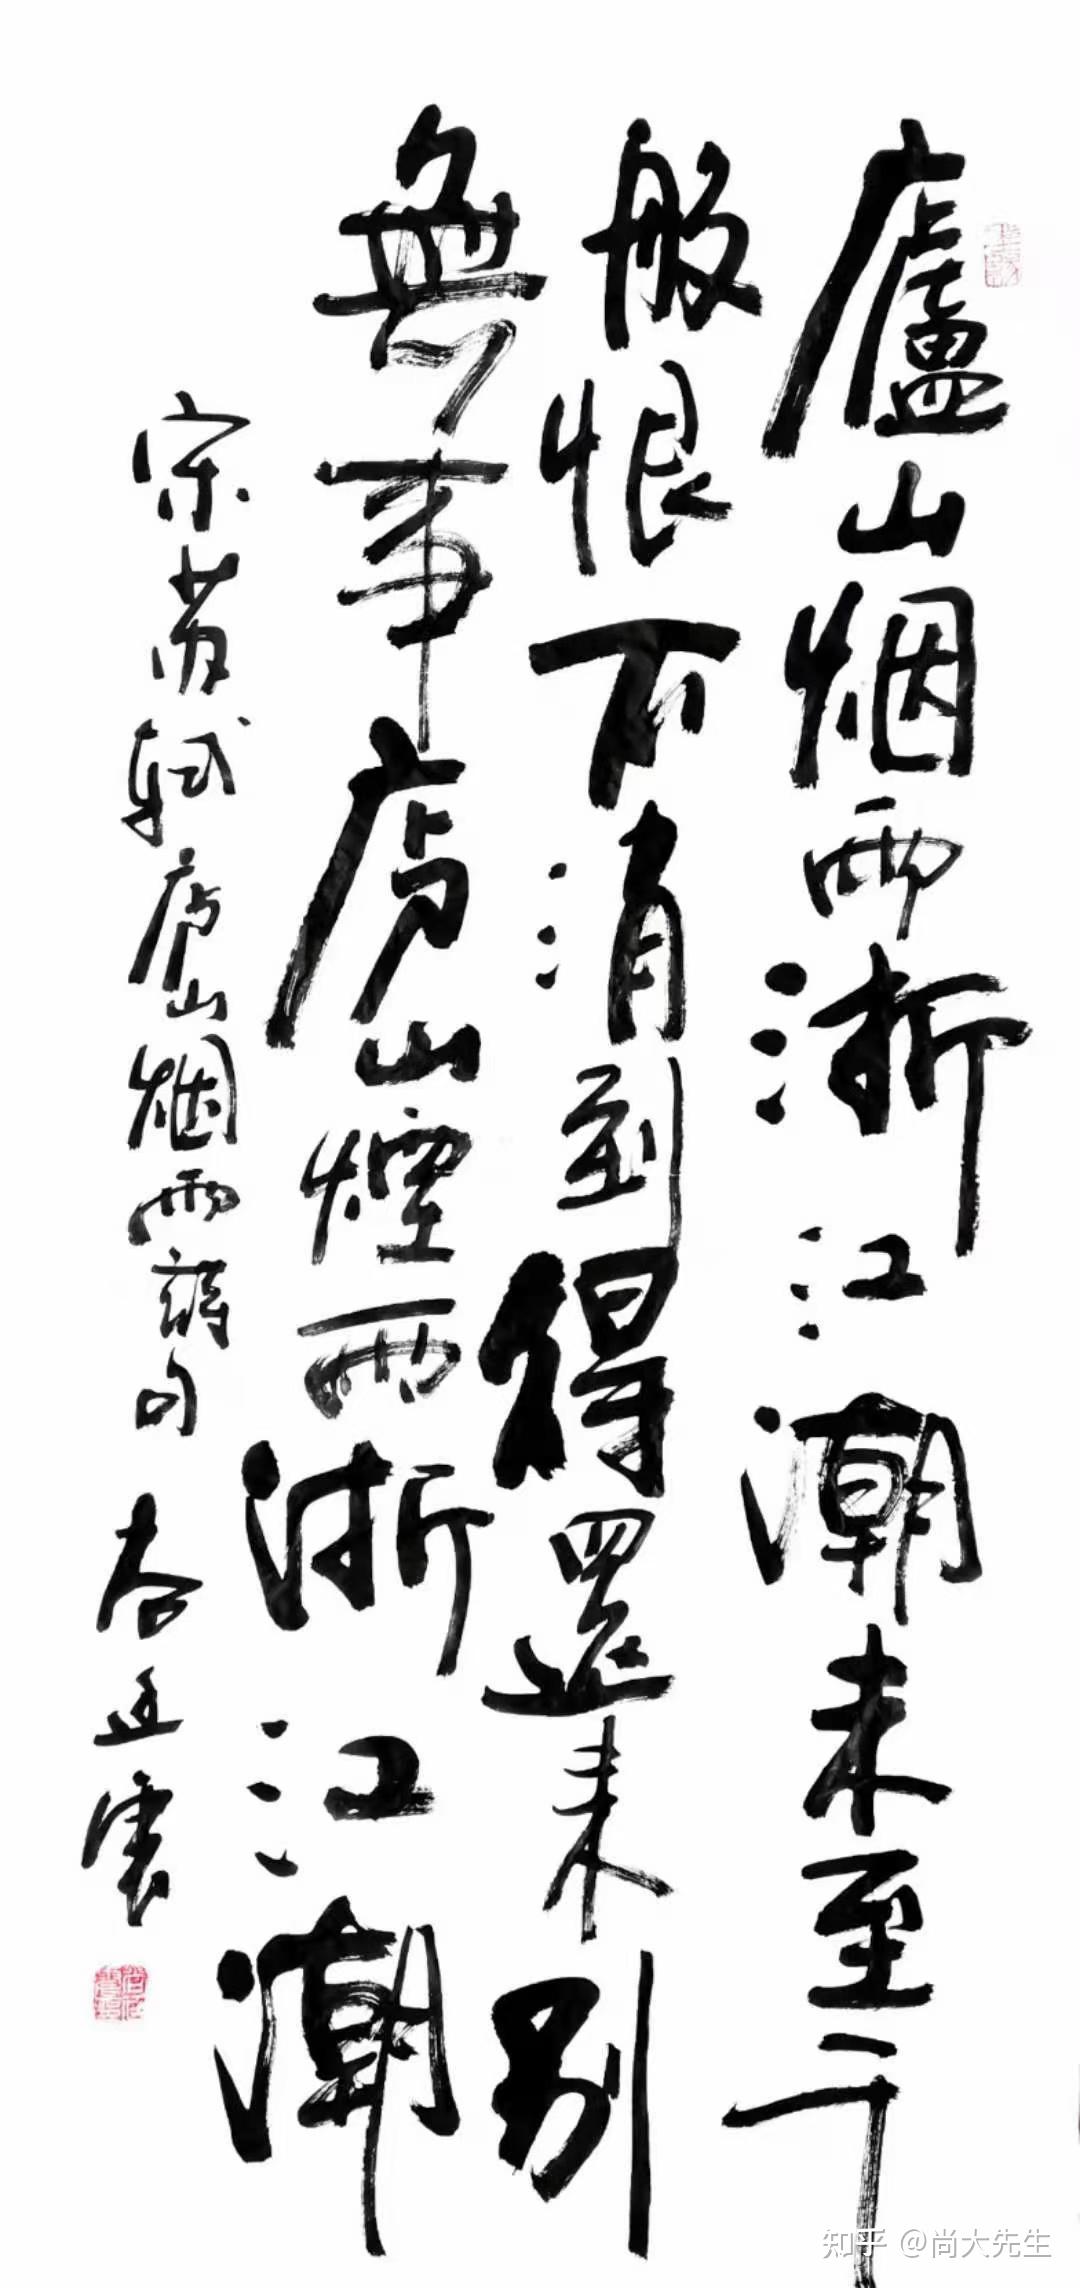 廬山烟雨浙江潮未至千
般恨不消到得還来别
無事庐山煙雨浙江潮
宋苏轼庐山烟雨诗句
知乎 @尚大先生